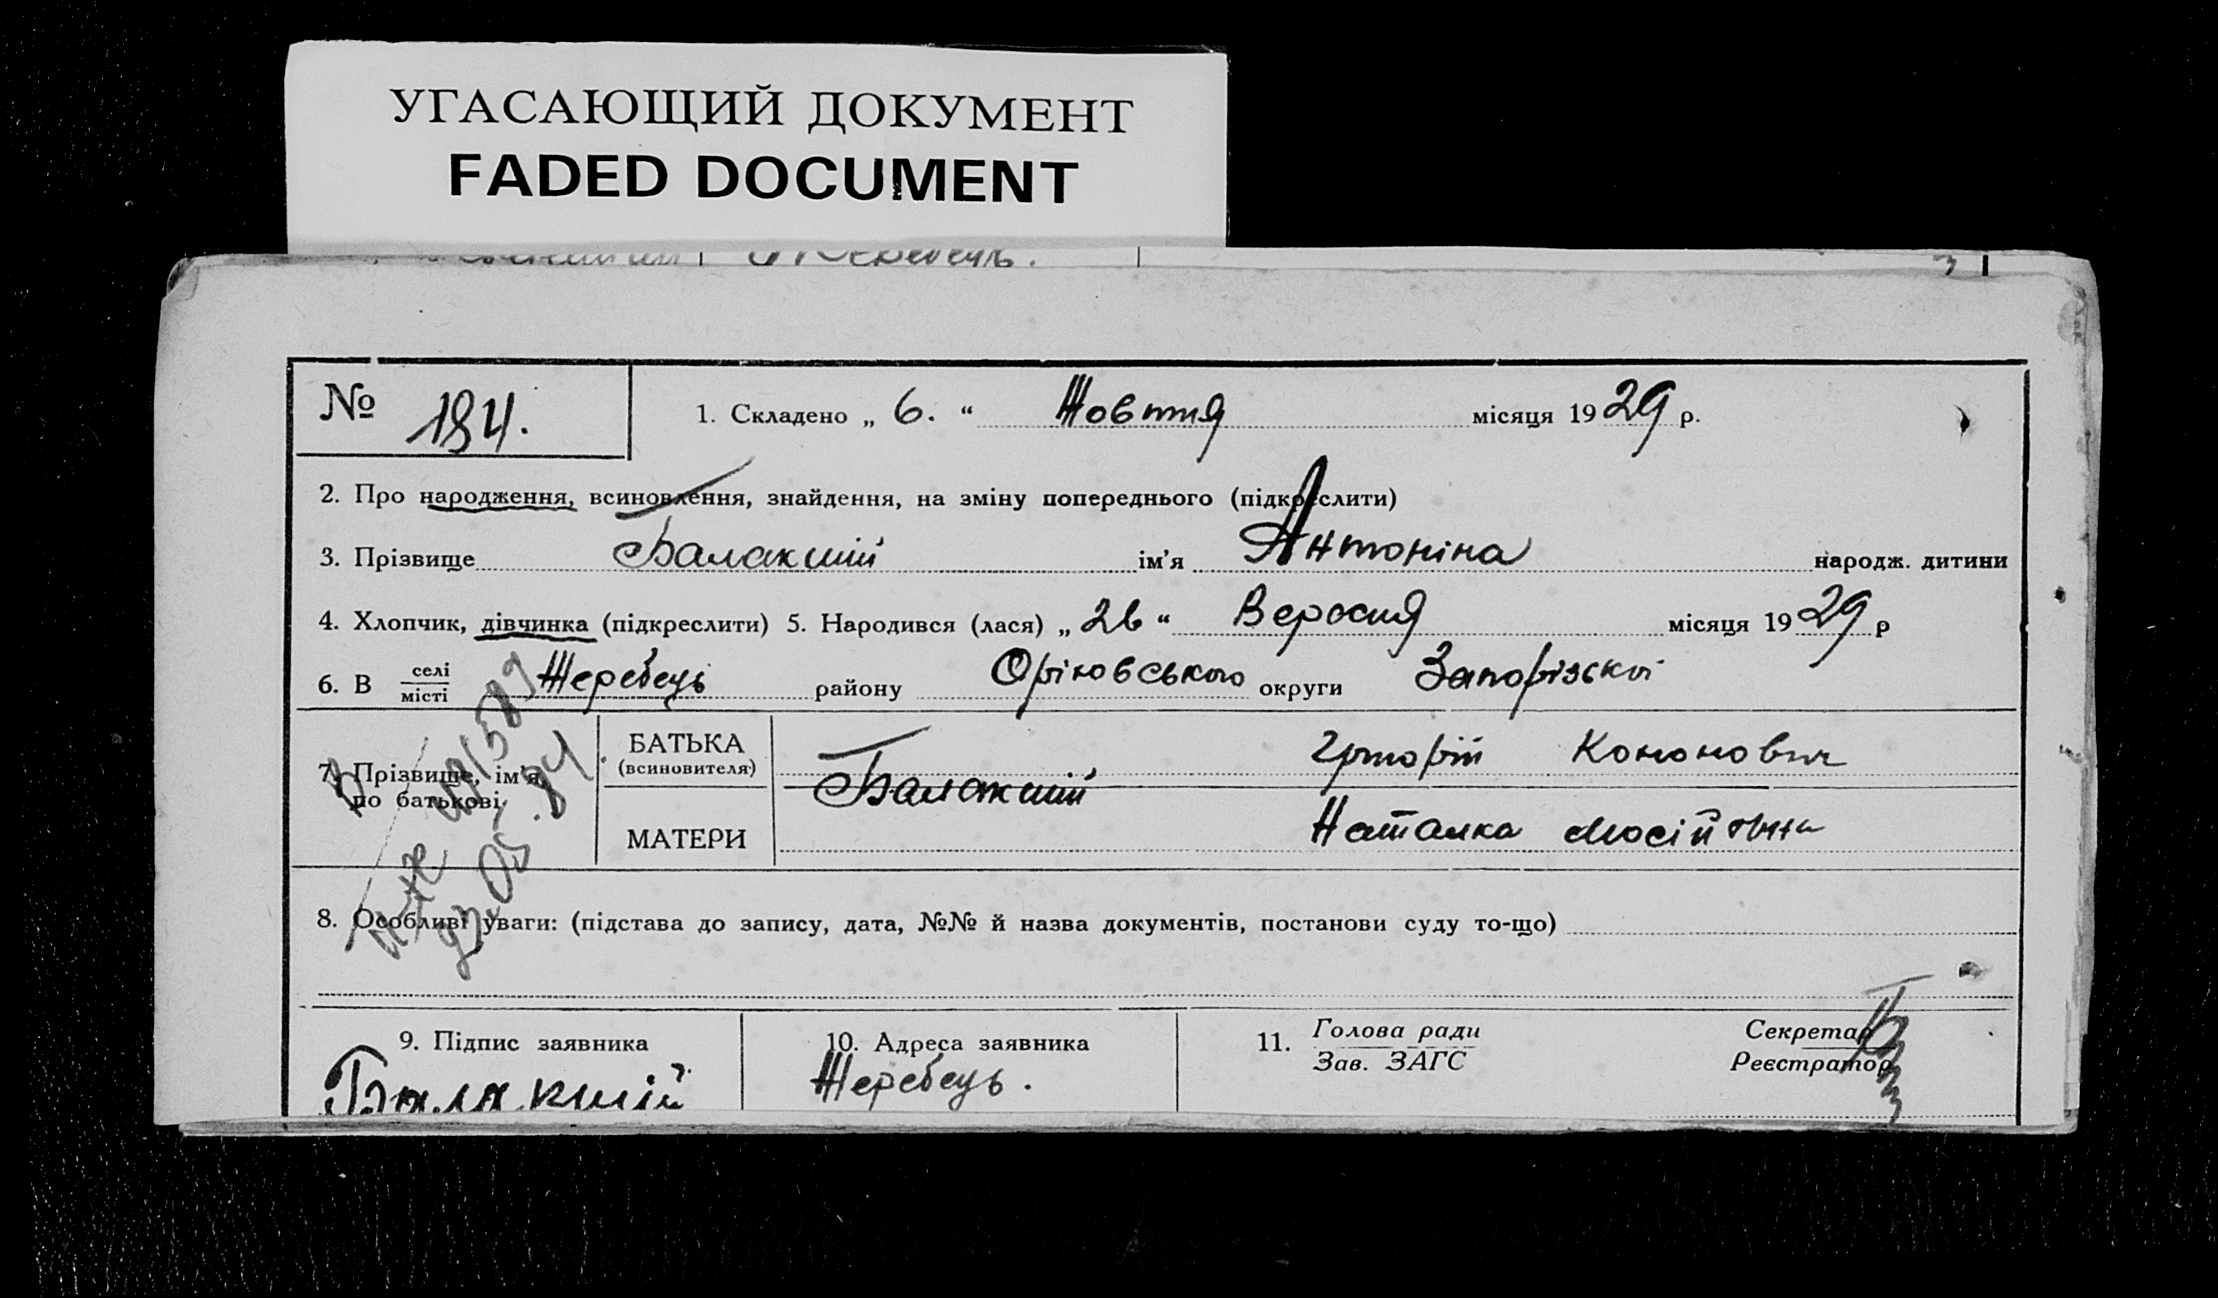 УГАСАЮЩИЙ ДОКУМЕНТ
FADED DOCUMENT
Жеребець.
№ 194.
1. Складено „ 6. “ Жовтня місяця 1929 р.
2. Про народження, всиновлення, знайдення, на зміну попереднього (підкреслити)
3. Прізвище Балакшій ім’я Антоніна народж. дитини
4. Хлопчик, дівчинка (підкреслити) 5. Народився (лася) „ 26 “ Вересня місяця 1929 р
6. В селі Жеребець району Оріховського округи Запорізької
місті
7. Прізвище, ім’я, по батькові
БАТЬКА (всиновителя) Балакшій Григорій Кононович
МАТЕРИ Наталка Мосійовна
8. Особливі уваги: (підстава до запису, дата, №№ й назва документів, постанови суду то-що)
9. Підпис заявника
Балакшій
10. Адреса заявника
Жеребець.
11. Голова ради
Зав. ЗАГС
Секретар
Реєстратор